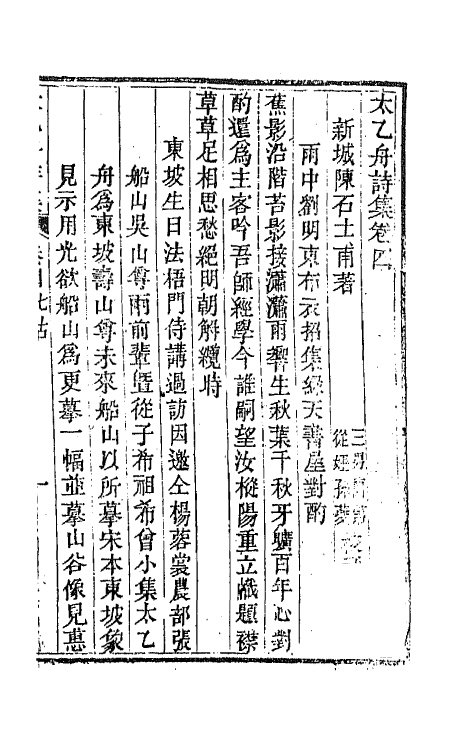 太乙舟詩集卷四
新城陳石士甫著
從 孫
雨中劉明東布衣招集綠天書屋對酌
蕉影沿階苔影接瀟瀟雨響生秋葉千秋牙曠百年心對
酌還爲主客吟吾師經學今誰嗣望汝樅陽重立幟題襟
草草足相思愁絕明朝解纜時
東坡生日法梧門侍講過訪因邀仝楊蓉裳農部張
船山吳山尊兩前輩曁從子希祖希曾小集太乙
舟爲東坡壽山尊未來船山以所摹宋本東坡象
見示用光欲船山爲更摹一幅並摹山谷像見惠
卷四七古
一